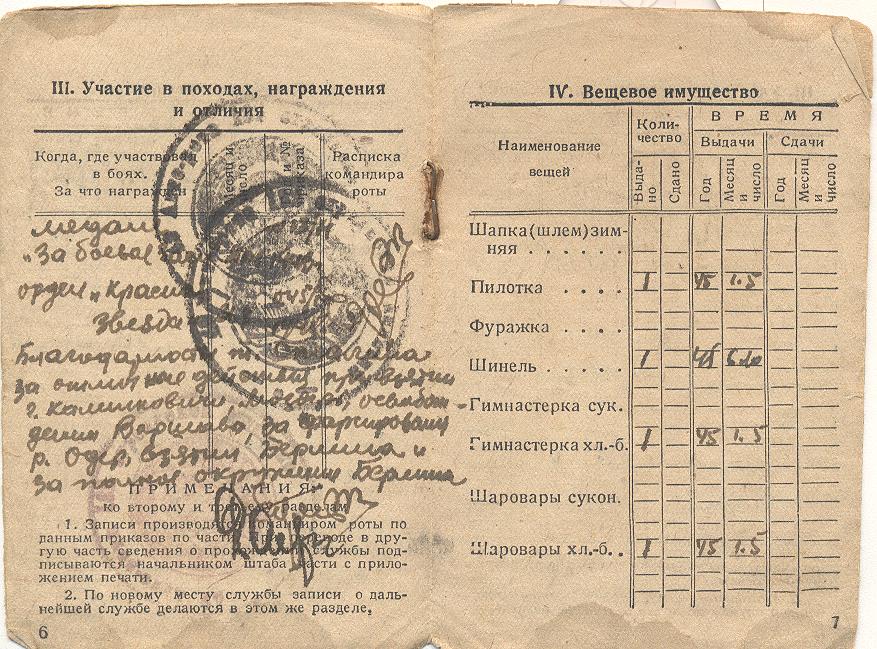 III. Участие в походах, награждения
и отличия
Когда, где участвовал
в боях.
За что награжден
Месяц и
число
и №
приказа
Расписка
командира
роты
медаль
„За боевые
орден „Красная
Звезда
Благодарности т. Сталина
за отличные действия при взятии
г. мостов, освобож-
дении Варшавы, за форсирование
р. Одер, взятии Берлина и
за полное окружении Берлина
ПРИМЕЧАНИЯ:
ко второму и третьему разделам
1. Записи производятся командиром роты по
данным приказов по части. При переводе в дру-
гую часть сведения о прохождении службы под-
писываются начальником штаба части с прило-
жением печати.
2. По новому месту службы записи о даль-
нейшей службе делаются в этом же разделе,
6
IV. Вещевое имущество
Наименование
вещей
Коли-
чество
ВРЕМЯ
Выдачи
Сдачи
Выда-
но
Сдано
Год
Месяц
и
число
Год
Месяц
и
число
Шапка(шлем)зим-
няя . . . . . .
Пилотка . . . . 1 45 1.5
Фуражка . . . .
Шинель . . . . 1 45
Гимнастерка сук.
Гимнастерка хл.-б. 1 45 1.5
Шаровары сукон.
Шаровары хл.-б. . 1 45 1.5
7